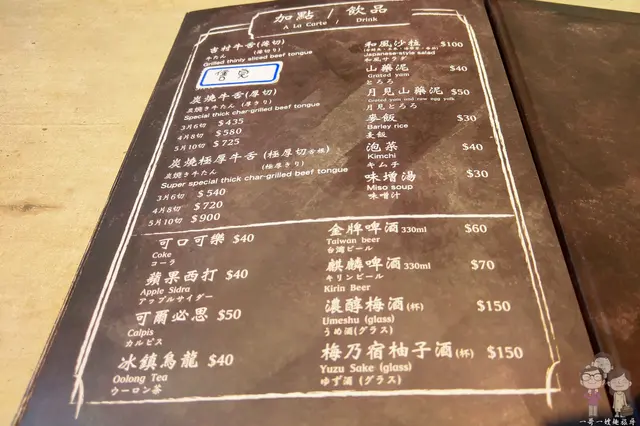 加點 / 飲品
A La Carte / Drink
吉村牛舌(薄切)
牛たん (薄切り)
Grilled thinly sliced beef tongue
售完
炭燒牛舌(厚切)
炭焼き牛たん (厚きり)
Special thick char-grilled beef tongue
3月6切 $435
4月8切 $580
5月10切 $725
炭燒極厚牛舌 (極厚切舌根)
炭焼き牛たん (極厚きり)
Super special thick char-grilled beef tongue
3月6切 $540
4月8切 $720
5月10切 $900
和風沙拉 $100
Japanese-style salad
和風サラダ
山藥泥 $40
Grated yam
とろろ
月見山藥泥 $50
Grated yam and raw egg yolk
月見とろろ
麥飯 $30
Barley rice
麦飯
泡菜 $40
Kimchi
キムチ
味增湯 $30
Miso soup
味噌汁
可口可樂 $40
Coke
コーラ
蘋果西打 $40
Apple Sidra
アップルサイダー
可爾必思 $50
Calpis
カルピス
冰鎮烏龍 $40
Oolong Tea
ウーロン茶
金牌啤酒 330ml $60
Taiwan beer
台湾ビール
麒麟啤酒 330ml $70
キリンビール
Kirin Beer
濃醇梅酒(杯) $150
Umeshu (glass)
うめ酒(グラス)
梅乃宿柚子酒(杯) $150
Yuzu Sake (glass)
ゆず酒 (グラス)